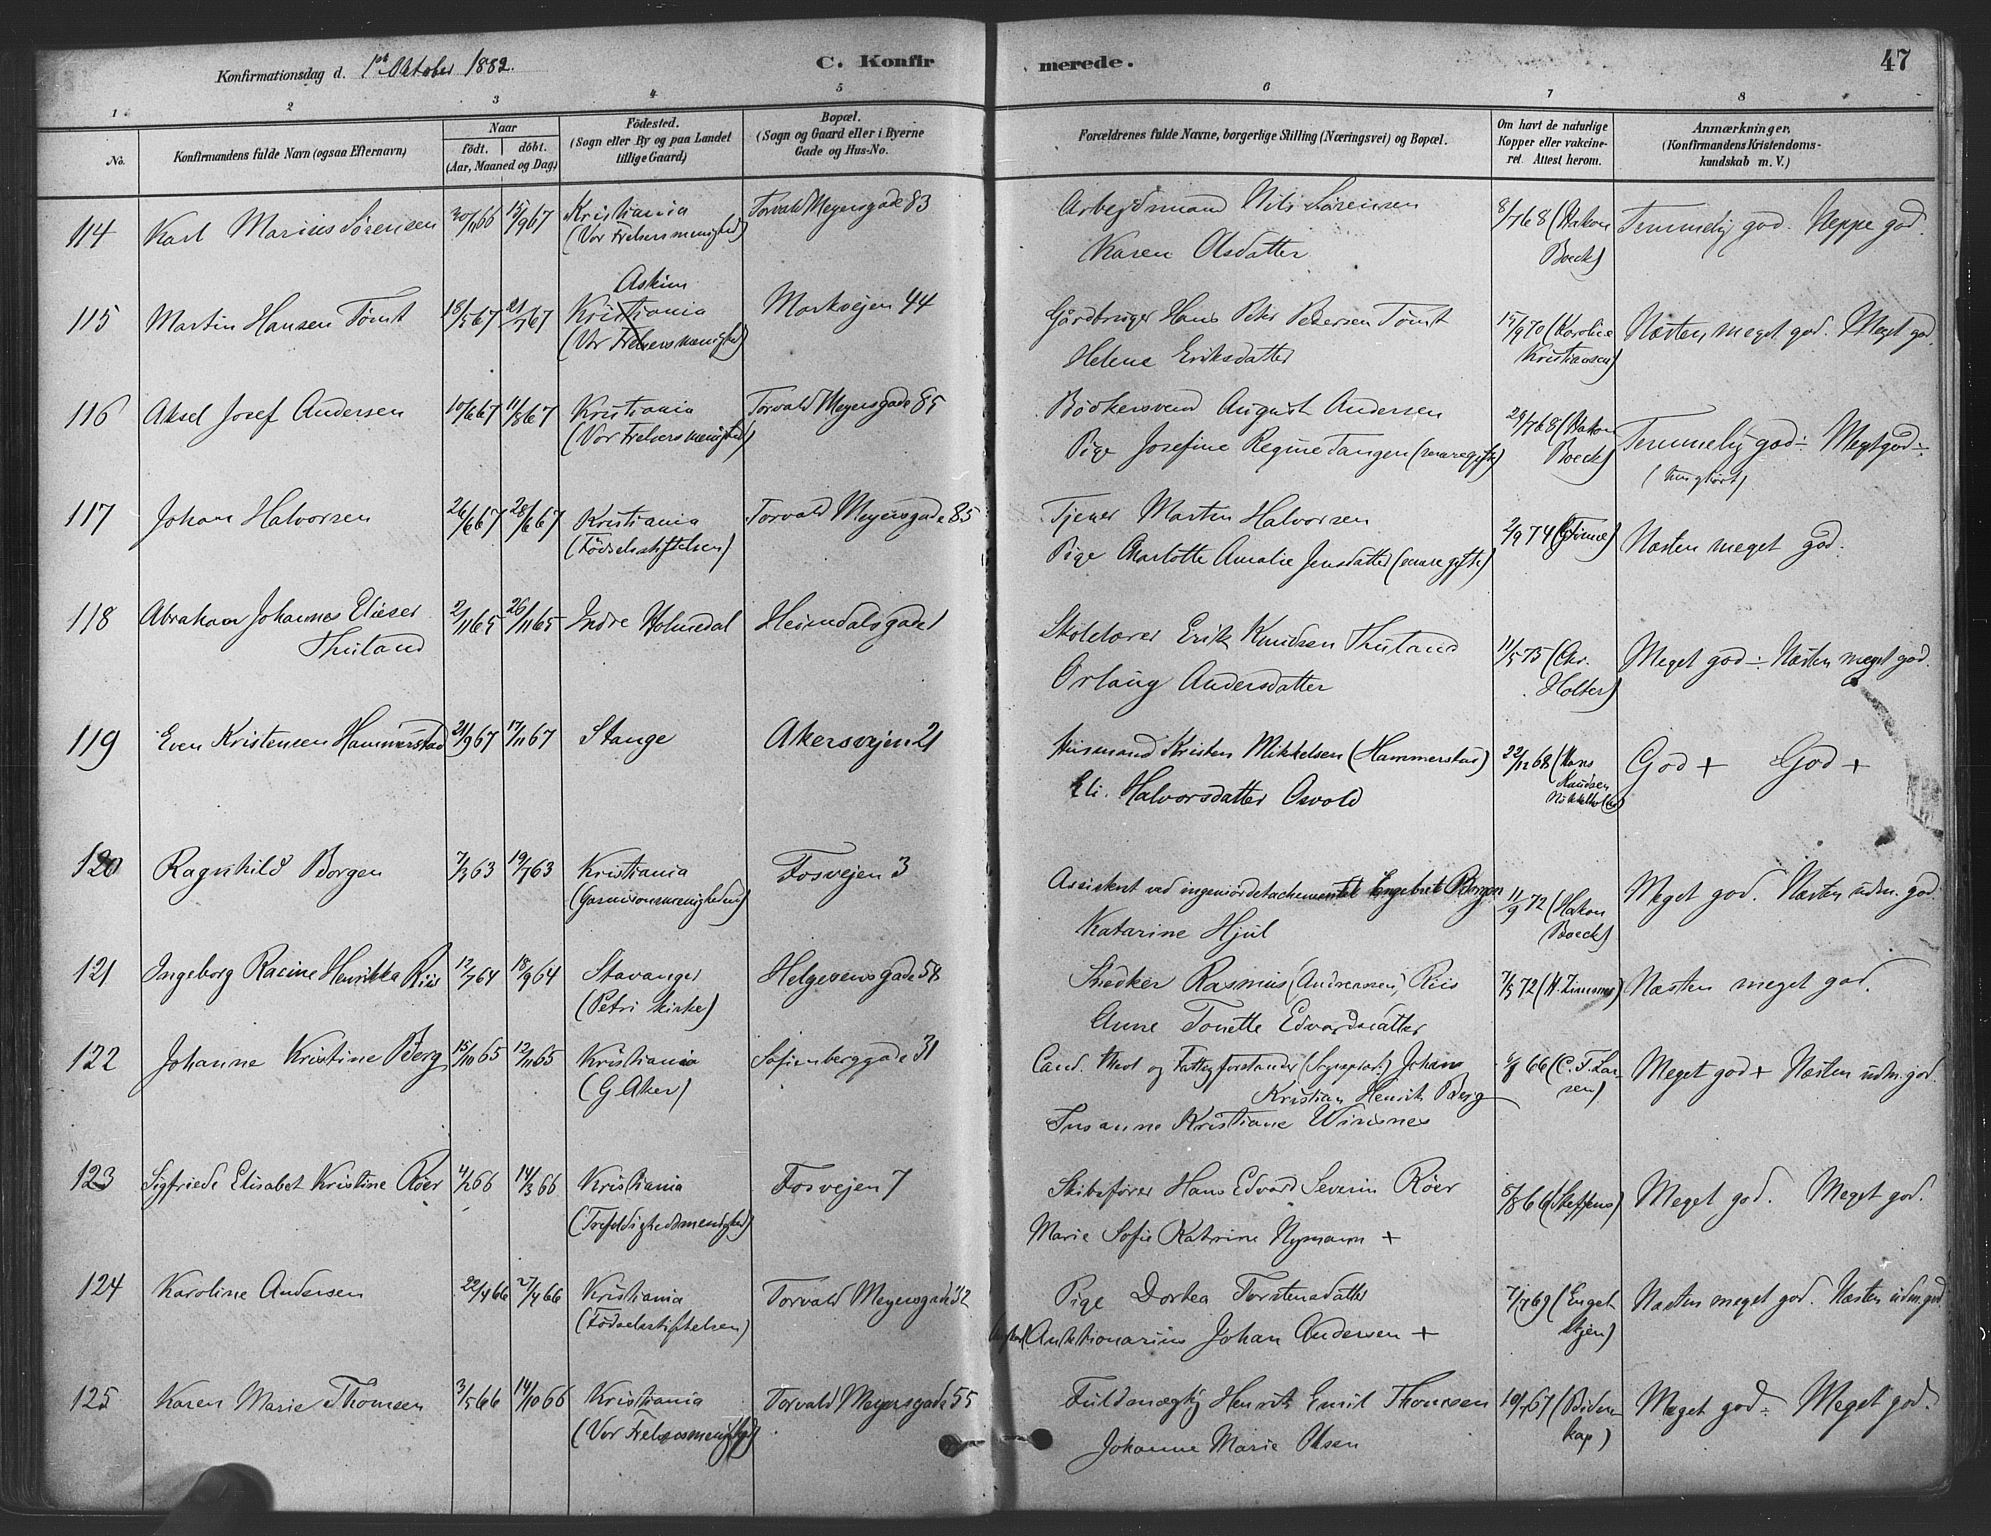 Konfirmationsdag d. 1ste Oktober 1882.
C. Konfirmerede.
47
1 2 3 4 5 6 7 8
No.
Konfirmandens fulde Navn (ogsaa Efternavn)
Naar
födt. döbt.
(Aar, Maaned og Dag)
Födested.
(Sogn eller By og paa Landet
tillige Gaard)
Bopæl.
(Sogn og Gaard eller i Byerne
Gade og Hus-No.
Forældrenes fulde Navne, borgerlige Stilling (Næringsvei) og Bopæl.
Om havt de naturlige
Kopper eller vakcine-
ret. Attest herom.
Anmærkninger,
(Konfirmandens Kristendoms-
kundskab m. V.)
114 Karl Marius Sørensen 30/11 66 15/9 67 Kristiania Torvald Meyersgade 83 Arbejdsmand Nils Sørensen 8/7 68 (Hakon Temmelig god. Neppe god.
(Vor Frelsers menighed) Karen Olsdatter Boeck)
Askim
115 Martin Hansen Tømt 18/5 67 21/7 67 Kristiania Markvejen 44 Gårdbruger Hans Peter Pedersen Tømt 15/9 70 (Karoline Næsten meget god. Meget god.
(Vor Frelsers menighed) Helene Eriksdatter Kristiansen)
116 Aksel Josef Andersen 10/6 67 11/8 67 Kristiania Torvald Meyersgade 85 Bødkersvend August Andersen 29/7 68 (Hakon Temmelig god ÷ Meget god ÷
(Vor Frelsers menighed) Pige Josefine Regine Tangen (senere gifte) Boeck)
117 Johan Halvorsen 26/6 67 28/6 67 Kristiania Torvald Meyersgade 85 Tjener Martin Halvorsen 2/9 74 Næsten meget god.
(Fødselsstiftelsen) Pige Charlotte Amalie Jensdatter (senere gifte)
118 Abraham Johannes Elieser 2/11 65 26/11 65 Indre Holmedal Heimdalsgade 1 Skolelærer Erik Knudsen Thuland 11/5 75 (Chr. Meget god ÷ Næsten meget god.
Thuland Orlaug Andersdatter Holter)
119 Even Kristensen Hammerstad 21/9 67 17/11 67 Stange Akersvejen 21 Husmand Kristen Mikkelsen (Hammerstad) 22/12 68 (Hans God + God +
Eli Halvorsdatter Osvold Knudsen
120 Ragnhild Borgen 7/3 63 19/7 63 Kristiania Fosvejen 3 Assistent ved ingeniørdetachementet Engebret Borgen 11/9 72 (Hakon Meget god. Næsten udm. god.
(Garnisonsmenigheden) Katarine Hjul Boeck)
121 Ingeborg Racine Henrikka Riis 12/7 64 18/9 64 Stavanger Helgesensgade 58 Snedker Rasmus (Andreassen) Riis 7/5 72 Næsten meget god.
(Petri kirke) Anne Tonette Edvardsdatter
122 Johanne Kristine Berg 15/10 65 12/11 65 Kristiania Sofienberggade 31 Cand. theol og Fattigforstander (Sogneprest) Johans 66 (C. F. Lar- Meget god + Næsten udm. god.
(G Aker) Kristian Henrik Berg sen)
Susanne Kristiane Winsnes
123 Sigfriede Elisabet Kristine Röer 4/2 66 14/3 66 Kristiania Fosvejen 7 Skibsfører Hans Edvard Severin Röer 5/8 66 (Steffens) Meget god. Meget god.
(Trefoldighedsmenighed) Marie Sofie Katrine Nymann +
124 Karoline Andersen 22/4 66 27/4 66 Kristiania Torvald Meyersgade 32 Pige Dorthea Torstensdatter 7/7 69 (Enget Næsten meget god. Næsten udm. god.
(Fødselsstiftelsen) Auktionarius Johan Andersen + skjøn)
125 Karen Marie Thomsen 3/5 66 14/10 66 Kristiania Torvald Meyersgade 55 Fuldmægtig Henrik Emil Thomsen 10/7 67 (Biden- Meget god ÷ Meget god.
(Vor Frelsers menighed) Johanne Marie Olsen kap)